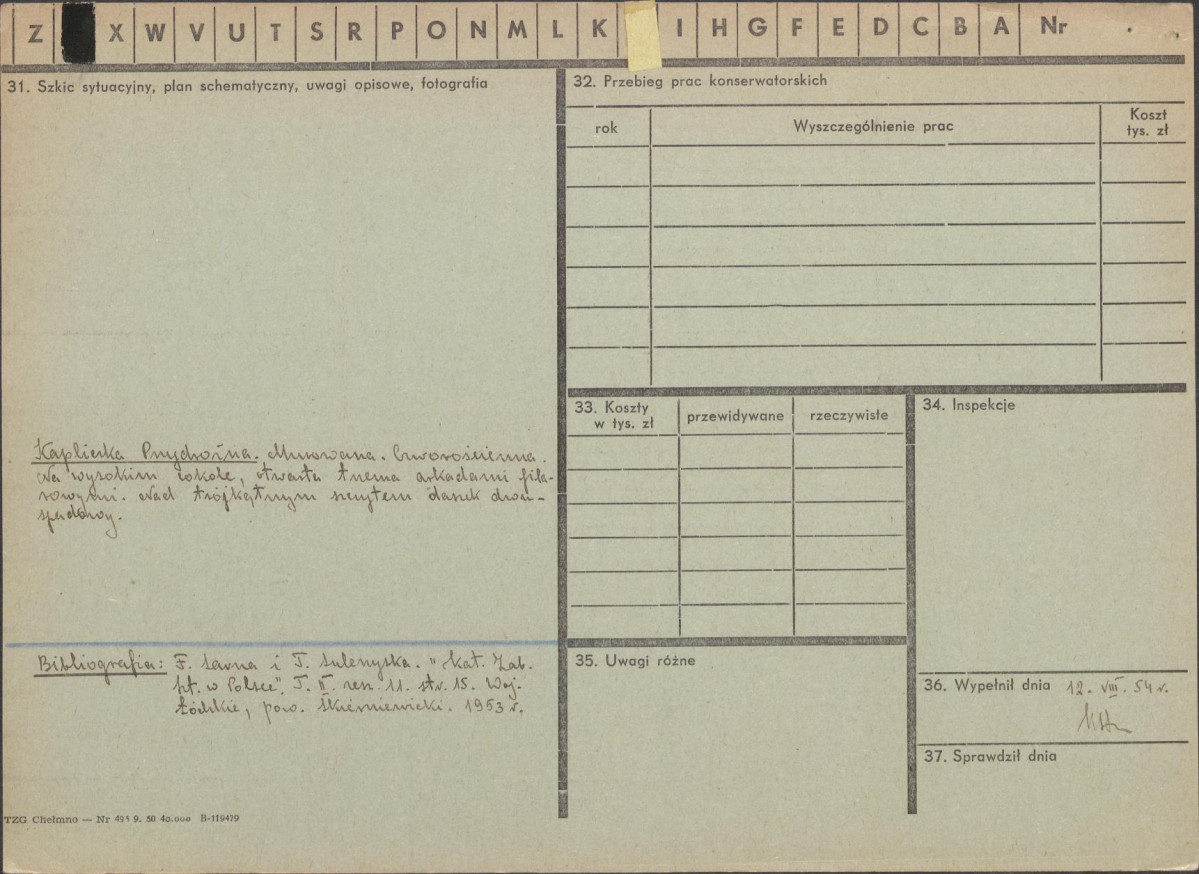 Z X W V U T S R P O N M L K I H G F E D C B A Nr
31. Szkic sytuacyjny, plan schematyczny, uwagi opisowe, fotografia
Kapliczka Przydrożna. Murowana. Czworościenna.
Na wysokim cokole, otwarta trzema arkadami fila-
rowymi. Nad trójkątnym szczytem daszek dwu-
spadowy.
Bibliografia: F. i T. Sulerzyska. "Kat. Zab.
szt. w Polsce". T. II. zesz. 11. str. 15. Woj.
Łódzkie, pow. Skierniewicki. 1953 r.
TZG Chełmno — Nr 495 9. 50 40.000 B-119479
32. Przebieg prac konserwatorskich
rok
Wyszczególnienie prac
Koszt
tys. zł
33. Koszty
w tys. zł
przewidywane
rzeczywiste
34. Inspekcje
35. Uwagi różne
36. Wypełnił dnia 12. VIII. 54 r.
37. Sprawdził dnia